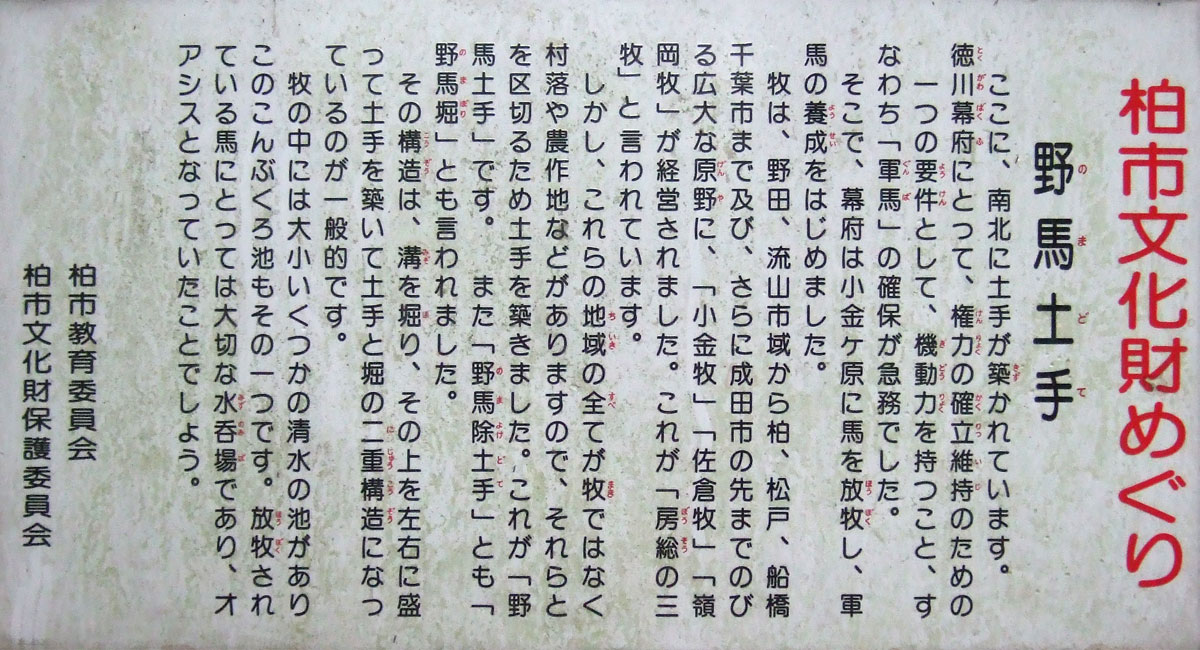 柏市文化財めぐり
野馬土手
ここに、南北に土手が築かれています。
徳川幕府にとって、権力の確立維持のための
一つの要件として、機動力を持つこと、す
なわち「軍馬」の確保が急務でした。
そこで、幕府は小金ヶ原に馬を放牧し、軍
馬の養成をはじめました。
牧は、野田、流山市域から柏、松戸、船橋
千葉市まで及び、さらに成田市の先までのび
る広大な原野に、「小金牧」「佐倉牧」「嶺
岡牧」が経営されました。これが「房総の三
牧」と言われています。
しかし、これらの地域の全てが牧ではなく
村落や農作地などがありますので、それらと
を区切るため土手を築きました。これが「野
馬土手」です。 また「野馬除土手」とも「
野馬堀」とも言われました。
その構造は、溝を堀り、その上を左右に盛
って土手を築いて土手と堀の二重構造になっ
ているのが一般的です。
牧の中には大小いくつかの清水の池があり
このこんぶくろ池もその一つです。放牧され
ている馬にとっては大切な水呑場であり、オ
アシスとなっていたことでしょう。
柏市教育委員会
柏市文化財保護委員会